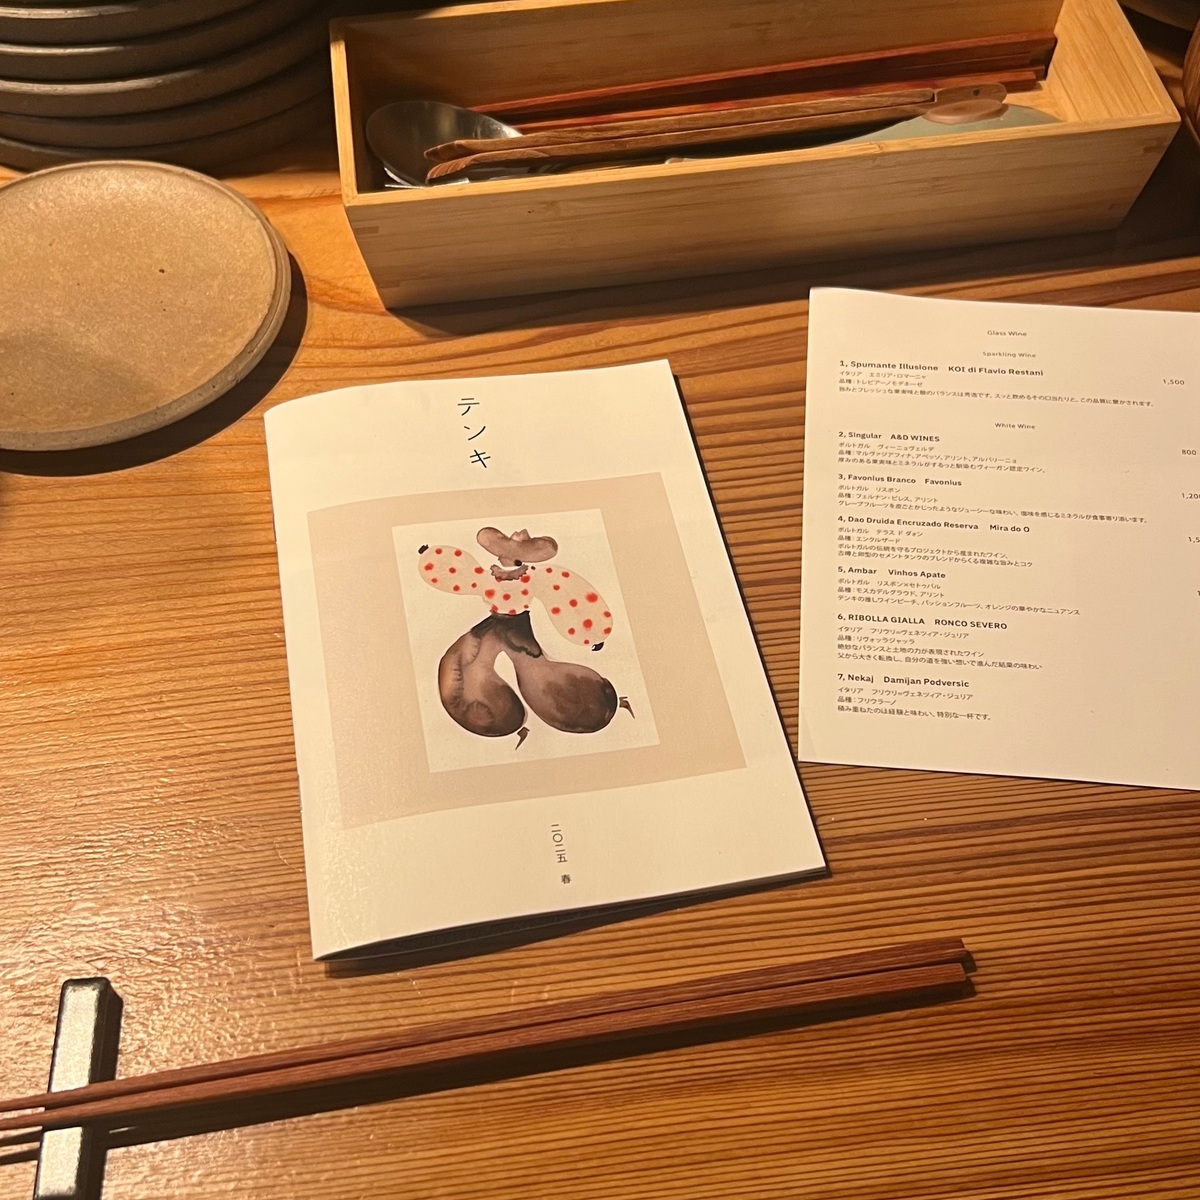 テンキ
二〇二五 春
Glass Wine
Sparkling Wine
1, Spumante Illusione KOI di Flavio Restani
イタリア エミリア・ロマーニャ
1,500
品種:トレビアーノモデネーゼ
旨みとフレッシュな果実味と酸のバランスは秀逸です。スッと飲めるその口当たりと、この品質に驚かされます。
White Wine
2, Singular A&D WINES
ポルトガル ヴィーニョヴェルデ
800
品種:マルヴァジアフィナ、アベッソ、アリント、アルバリーニョ
厚みのある果実味とミネラルがするっと馴染むヴィーガン認定ワイン。
3, Favonius Branco Favonius
ポルトガル リスボン
品種:フェルナン・ピレス、アリント
グレープフルーツを皮ごとかじったようなジューシーな味わい、塩味を感じるミネラルが食事寄り添います。
4, Dao Druida Encruzado Reserva Mira do O
ポルトガル テラス ド ダォン
品種:エンクルザード
ポルトガルの伝統を守るプロジェクトから産まれたワイン。
古樽と卵型のセメントタンクのブレンドからくる複雑な旨みとコク
5, Ambar Vinhos Apate
ポルトガル リスボン×セトゥバル
品種:モスカデルグラウド、アリント
テンキの推しワインピーチ、パッションフルーツ、オレンジの華やかなニュアンス
6, RIBOLLA GIALLA RONCO SEVERO
イタリア フリウリ=ヴェネツィア・ジュリア
品種:リヴォッラジャッラ
絶妙なバランスと土地の力が表現されたワイン
父から大きく転換し、自分の道を強い想いで進んだ結果の味わい
7, Nekaj Damijan Podversic
イタリア フリウリ=ヴェネツィア・ジュリア
品種:フリウラーノ
積み重ねたのは経験と味わい、特別な一杯です。